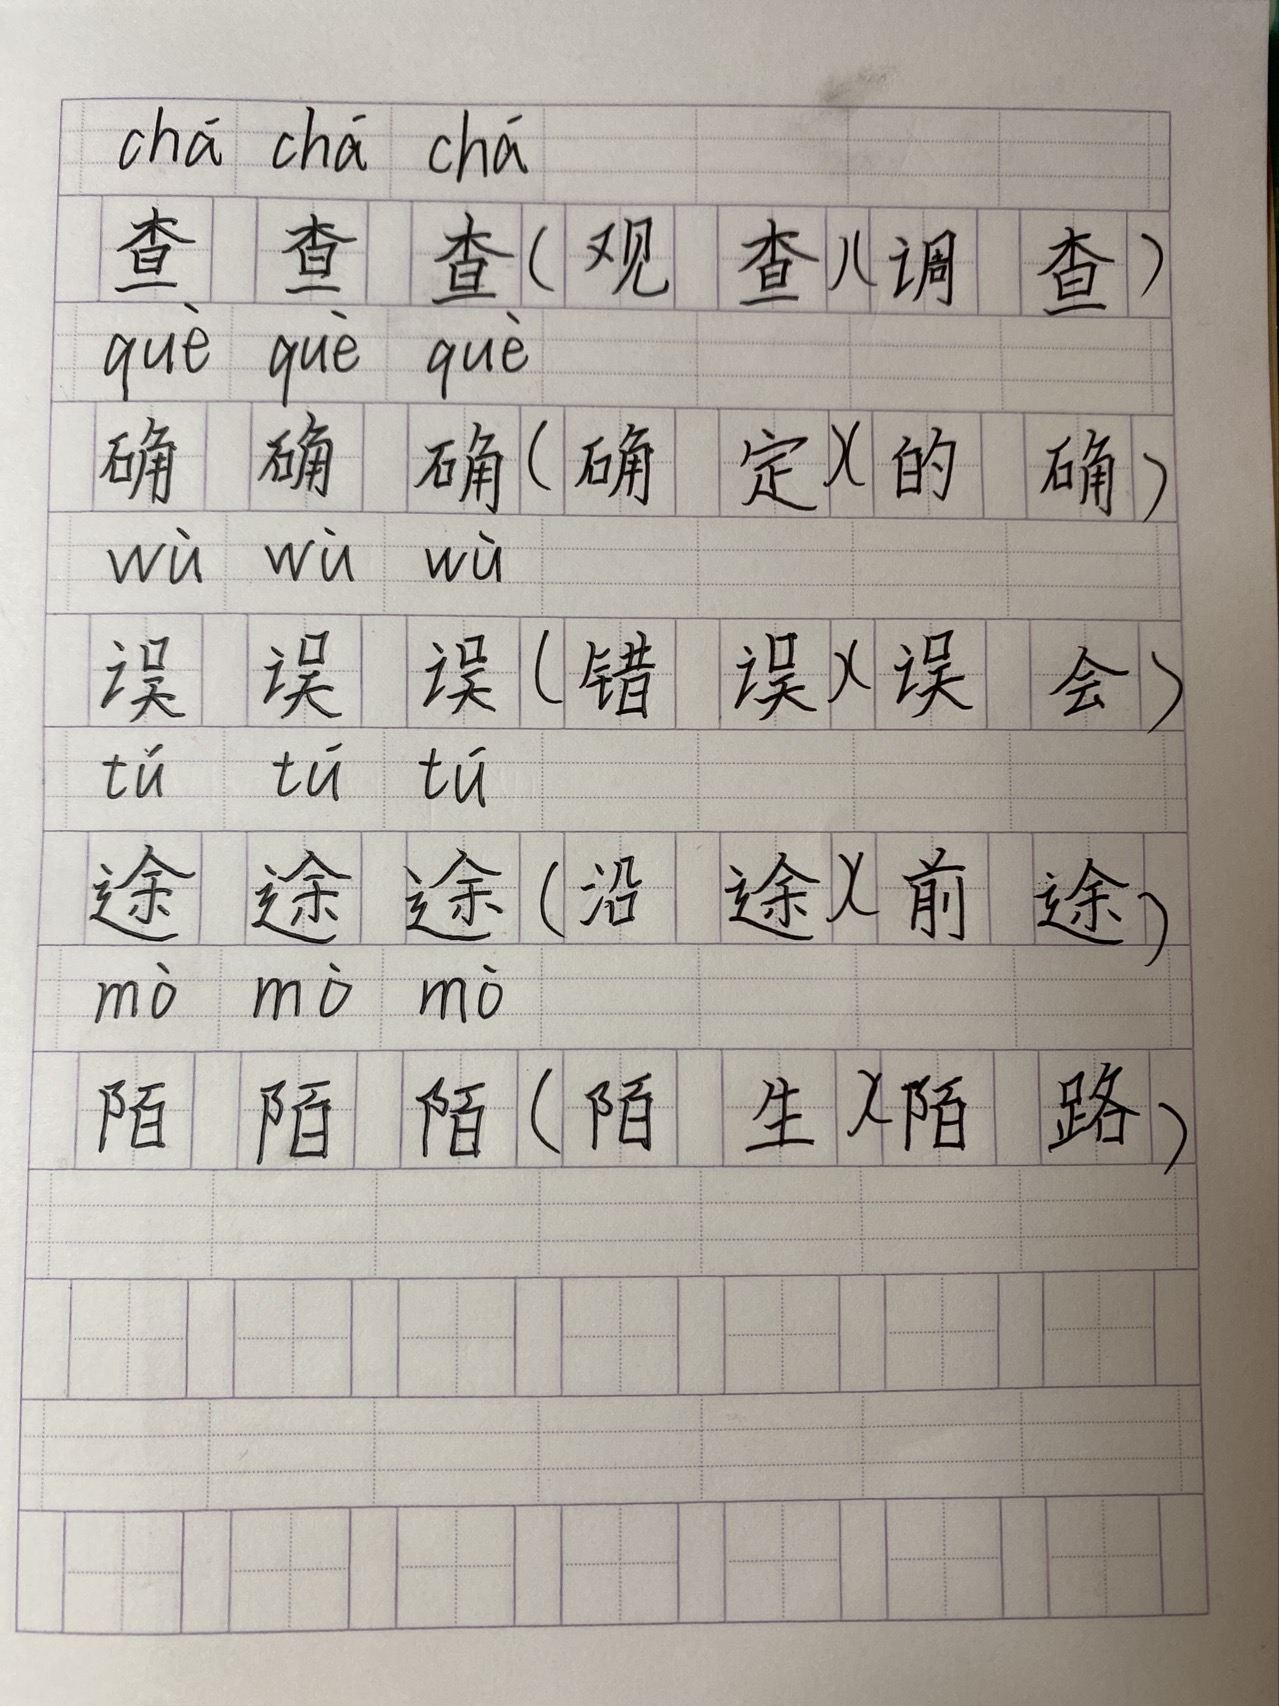 chá chá chá
查 查 查(观 查)(调 查)
què què què
确 确 确(确 定)(的 确)
wù wù wù
误 误 误(错 误)(误 会)
tú tú tú
途 途 途(沿 途)(前 途)
mò mò mò
陌 陌 陌(陌 生)(陌 路)